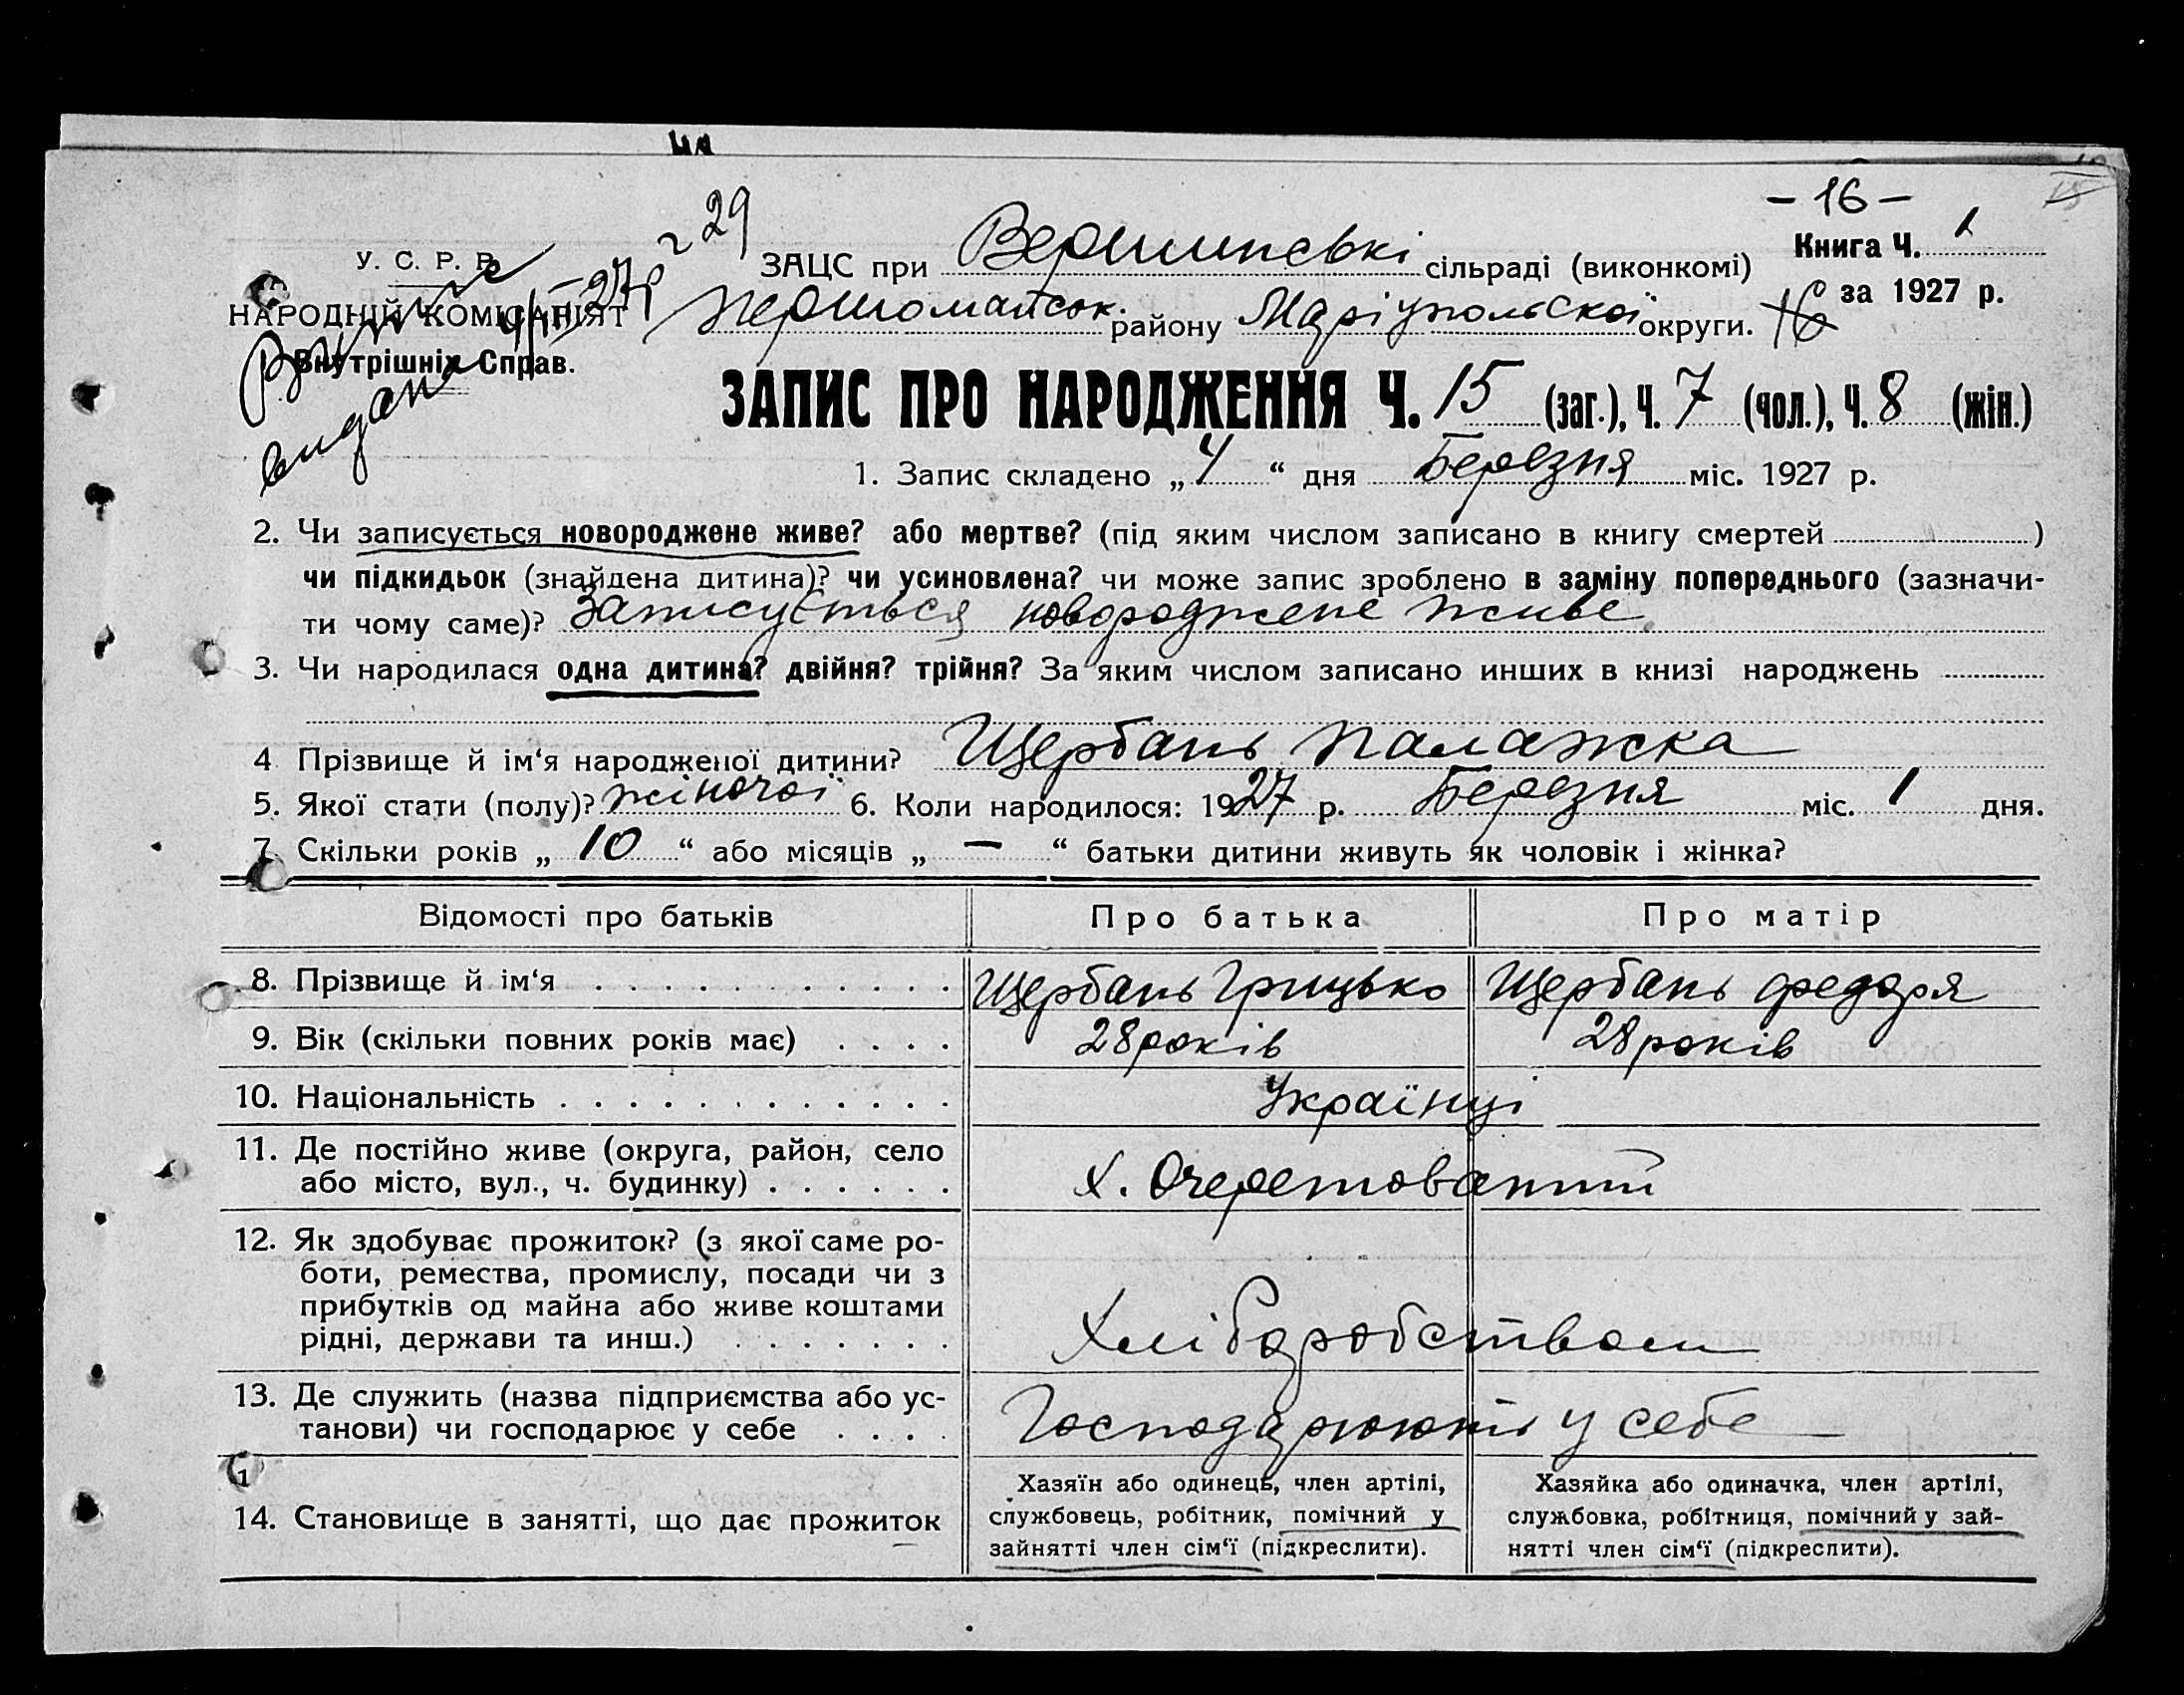 - 16 -
У. С. Р. Р.
НАРОДНІЙ КОМІСАРІЯТ
Внутрішніх Справ.
видана
г 29
ЗАЦС при Вершинські сільраді (виконкомі)
Книга Ч. 1
Першомайськ. району Маріупольскої округи.
16 за 1927 р.
ЗАПИС ПРО НАРОДЖЕННЯ Ч. 15 (заг.), Ч. 7 (чол.), Ч. 8 (жін.)
1. Запис складено „ 4 “ дня Березня міс. 1927 р.
2. Чи записується новороджене живе? або мертве? (під яким числом записано в книгу смертей )
чи підкидьок (знайдена дитина)? чи усиновлена? чи може запис зроблено в заміну попереднього (зазначи-
ти чому саме)? Записується новороджене живе.
3. Чи народилася одна дитина? двійня? трійня? За яким числом записано инших в книзі народжень
4 Прізвище й ім‘я народженої дитини? Щербань Палажка
5. Якої стати (полу)? жіночої 6. Коли народилося: 1927 р. Березня міс. 1 дня.
7. Скільки років „ 10 “ або місяців „ — “ батьки дитини живуть як чоловік і жінка?
Відомості про батьків Про батька Про матір
8. Прізвище й ім‘я Щербань Грицько Щербань Федоря
9. Вік (скільки повних років має) 28 років 28 років
10. Національність Українці
11. Де постійно живе (округа, район, село
або місто, вул., ч. будинку) х. Очеретоватий
12. Як здобуває прожиток? (з якої саме ро-
боти, ремества, промислу, посади чи з
прибутків од майна або живе коштами
рідні, держави та инш.) Хліборобством
13. Де служить (назва підприємства або ус-
танови) чи господарює у себе Господарюють у себе
14. Становище в занятті, що дає прожиток
Хазяїн або одинець, член артілі,
службовець, робітник, помічний у
зайнятті член сім‘ї (підкреслити).
Хазяйка або одиначка, член артілі,
службовка, робітниця, помічний у зай-
нятті член сім‘ї (підкреслити).